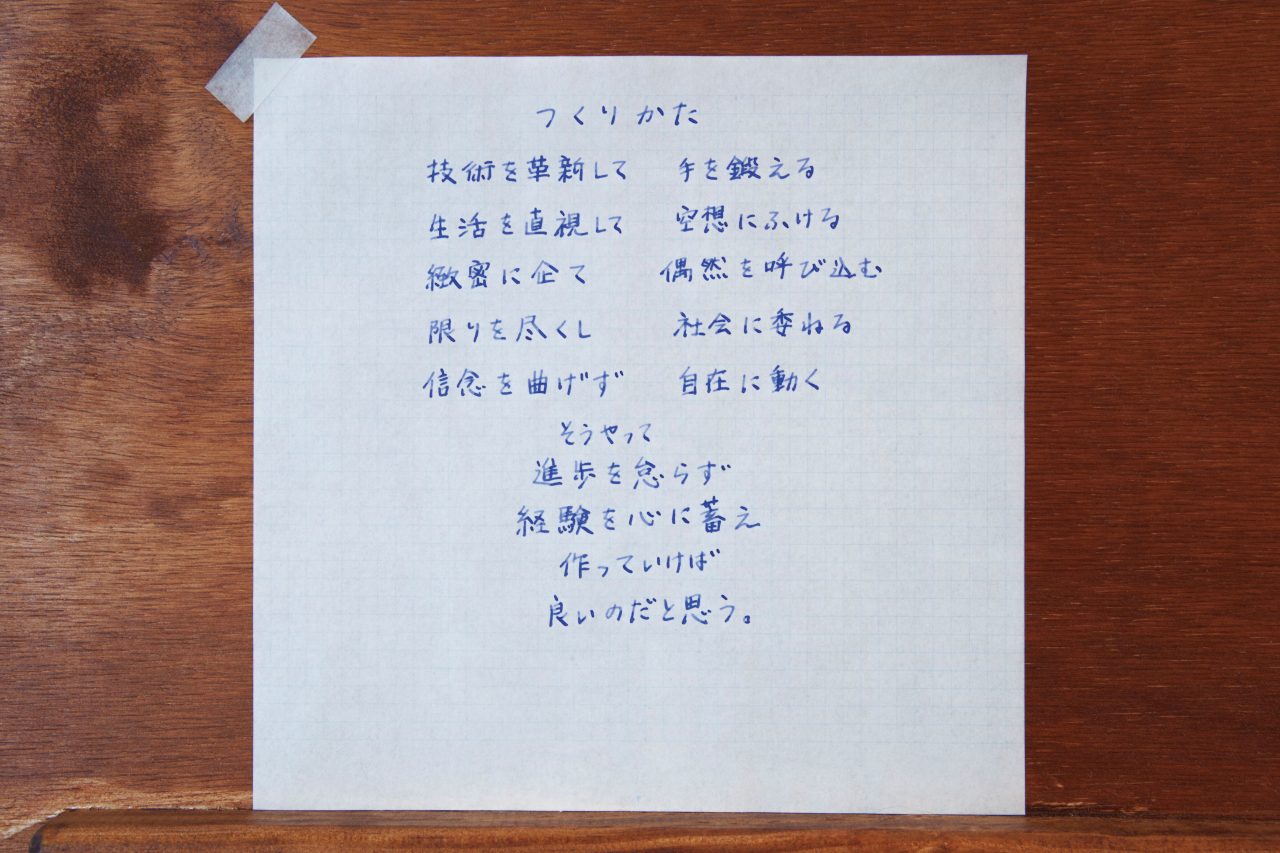 つくりかた
技術を革新して 手を鍛える
生活を直視して 空想にふける
緻密に企て 偶然を呼び込む
限りを尽くし 社会に委ねる
信念を曲げず 自在に動く
そうやって
進歩を怠らず
経験を心に蓄え
作っていけば
良いのだと思う。